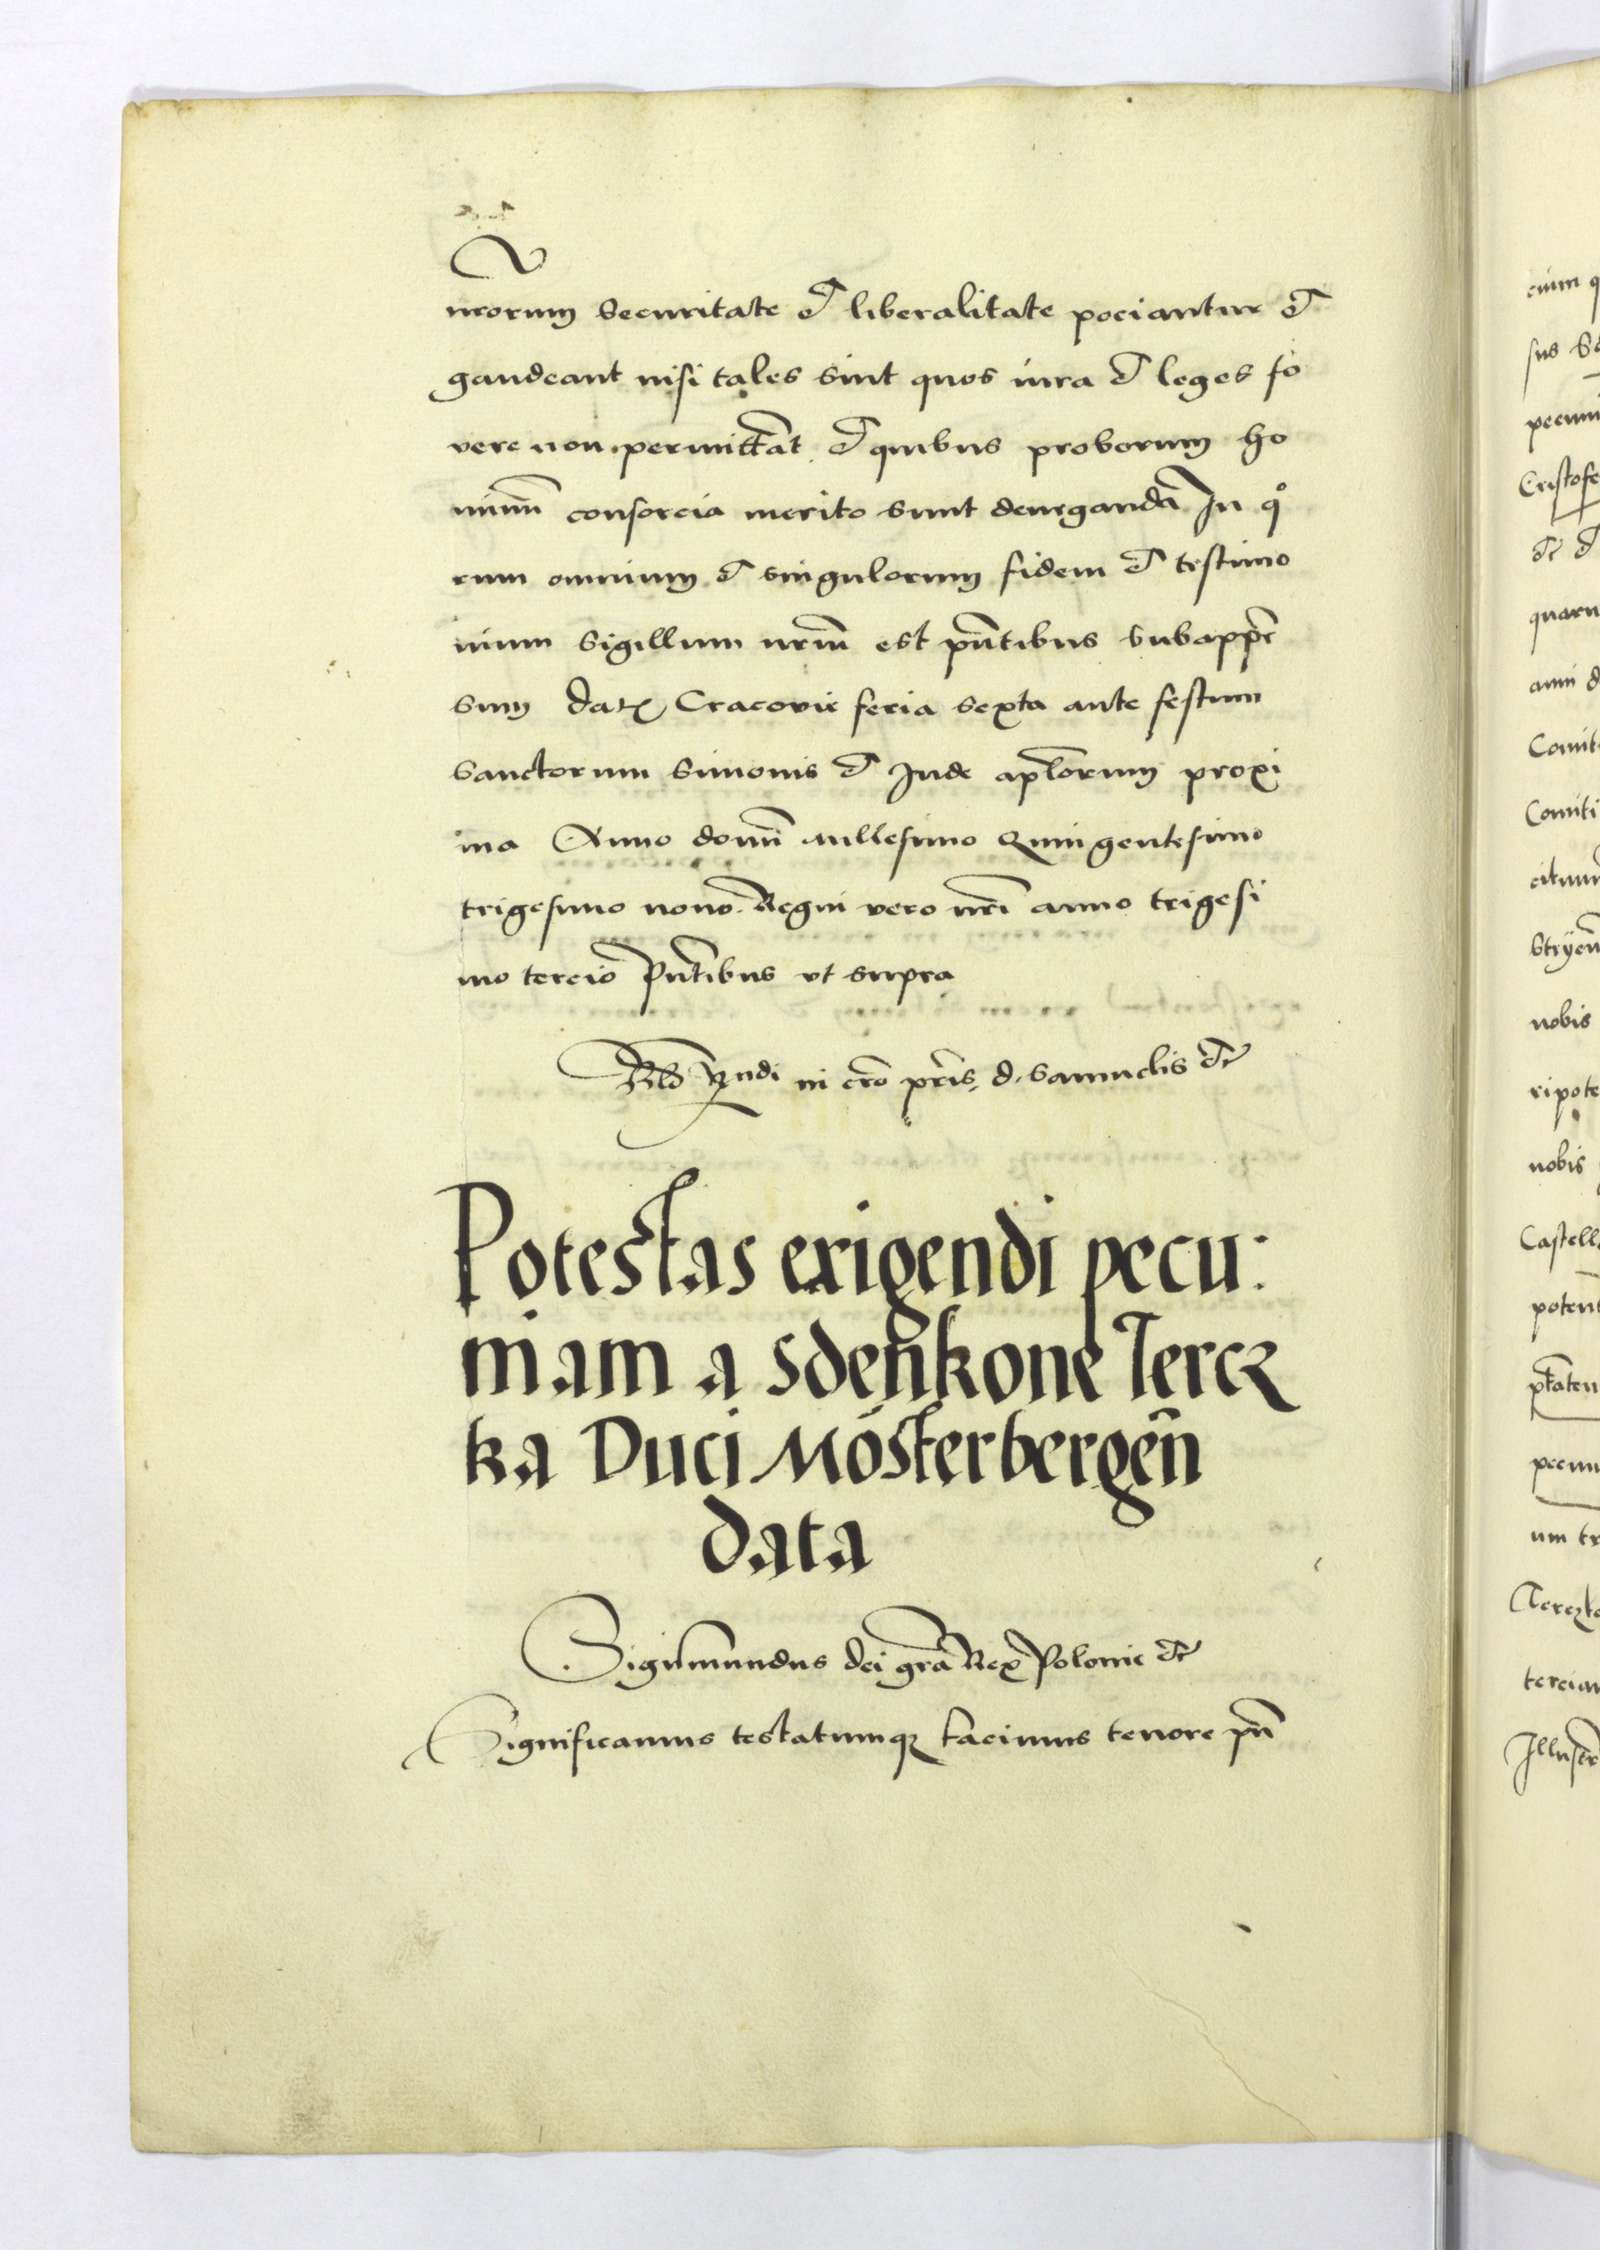 nrorum securitate et liberalitate pociantur et
gaudeant nisi tales sint quos iura et leges fo
vere non permittāt et quibus proborum ho
minū consorcia merito sunt deneganda In qͦ
rum omnium et singulorum fidem et testimo
nium sigillum nrm̄ est pn̄tibus subappē
sum dat Cracovie feria sexta ante festum
sanctorum Simonis et Jude apl̄orum proxi
ma Anno domī millesimo Quingentesimo
trigesimo nono Regni vero nrī anno trigesi
mo tercio Pn̄tibus ut supra
Rndi in cro pris d. Samuelis etc
Potestas exigendi pecu:
niam a Sdeñkone Tercz
ka Duci Mósterbergeñ
data
Sigismundus dei grā Rex Polonie etc
Significamus testatumqꝫ facimus tenore pn̄
cium q
sus
pecuni
Cristofe
etc et
quaru
ami d
Comit
Comiti
citum
Stryeñ
nobis
ripote
nobis
Castell
potent
ptaten
pecuni
um tr
Terczk
tercian
Illustr